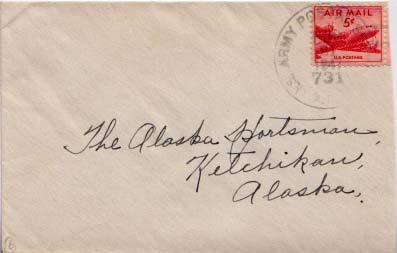 AIR MAIL
5¢
U.S. POSTAGE
U.S. ARMY
731
The Alaska Sportsman,
Ketchikan,
Alaska.